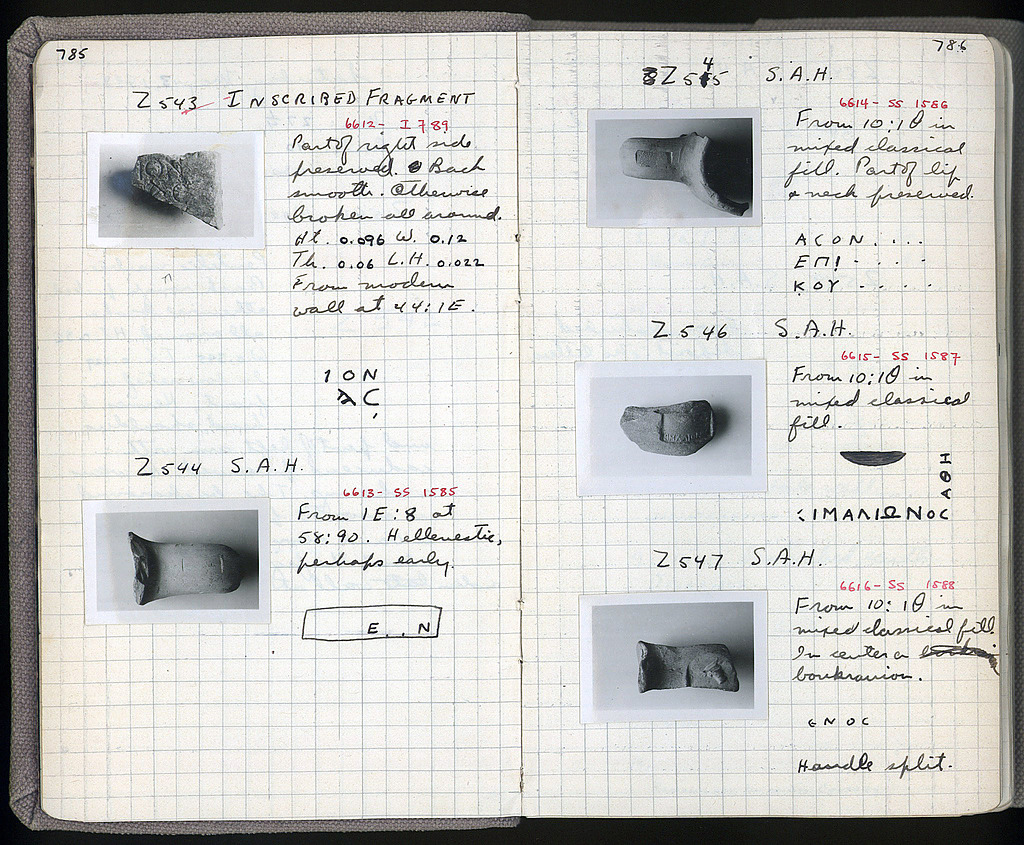 785
Z 543 INSCRIBED FRAGMENT
6612- I 789
Part of right side
preserved. Back
smooth. Otherwise
broken all around.
Ht. 0.096 W. 0.12
Th. 0.06 L.H. 0.022
From modern
wall at 44:1E.
ΙΟΝ
ΑC
Z 544 S.A.H.
6613- SS 1585
From 1E:8 at
58:90. Hellenestic,
perhaps early.
E..N
786
Z 545 S.A.H.
6614- SS 1586
From 10:1Θ in
mixed classical
fill. Part of lip
& neck preserved.
ΑCΟΝ....
ΕΠΙ....
ΚΟΥ.....
Z 546 S.A.H.
6615- SS 1587
From 10:1Θ in
mixed classical
fill.
ΑΘΗ
ΙΜΑΛΙΩΝΟC
Z 547 S.A.H.
6616- SS 1588
From 10:1Θ in
mixed classical fill.
In center a
boukranion.
ЄΝΟC
Handle split.